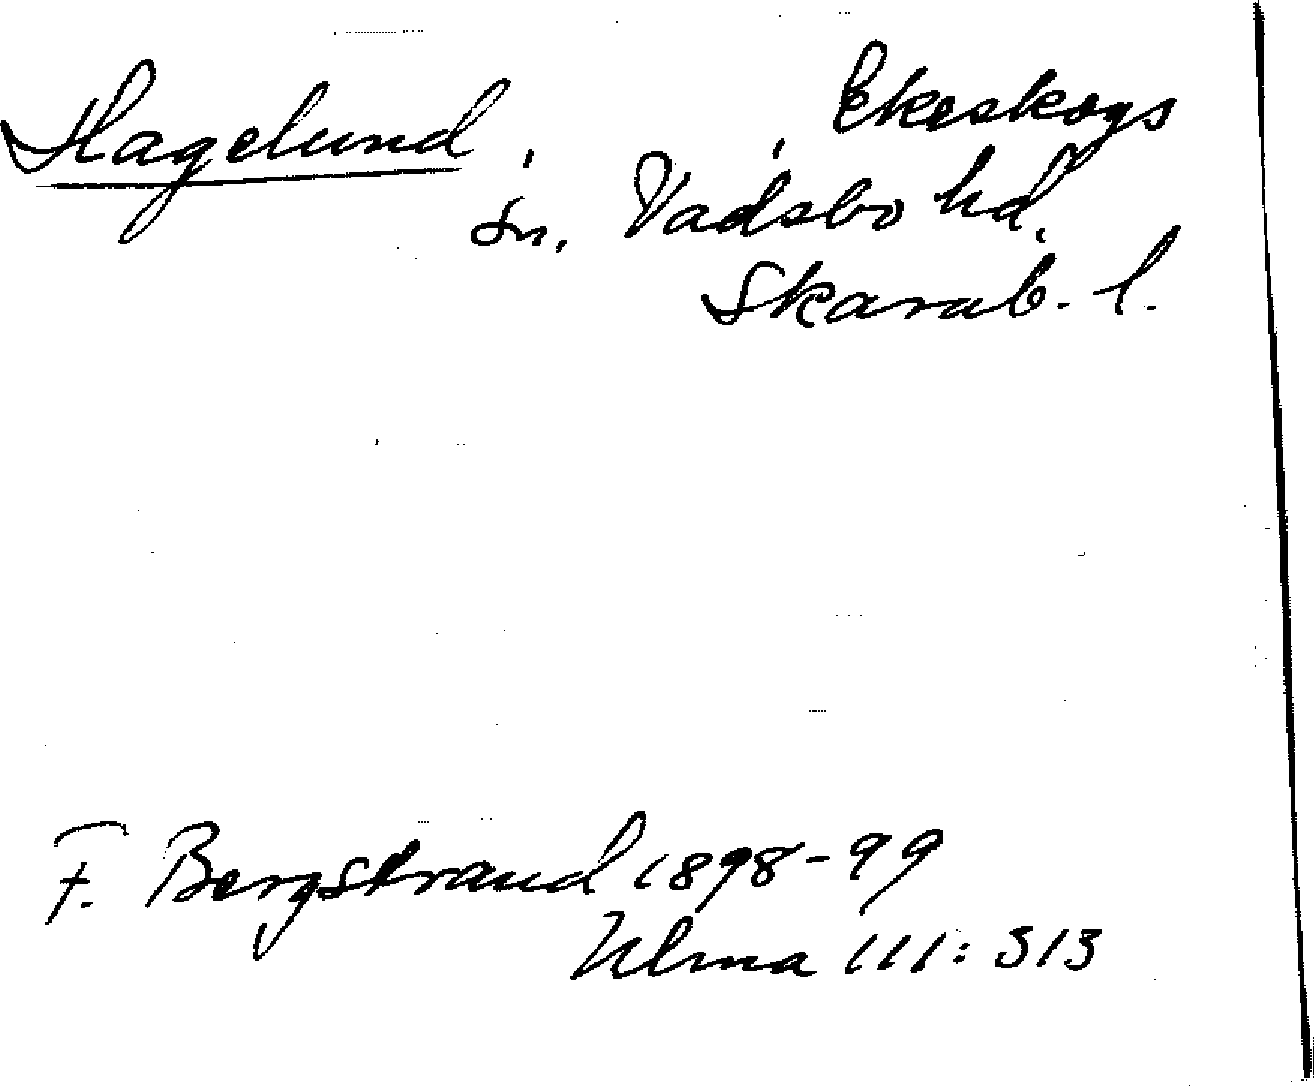 Hagelund, Ekeskogs
sn, Vadsbo hd,
Skarab. l.
F. Bergstrand 1898-99
Ulma 111: 313